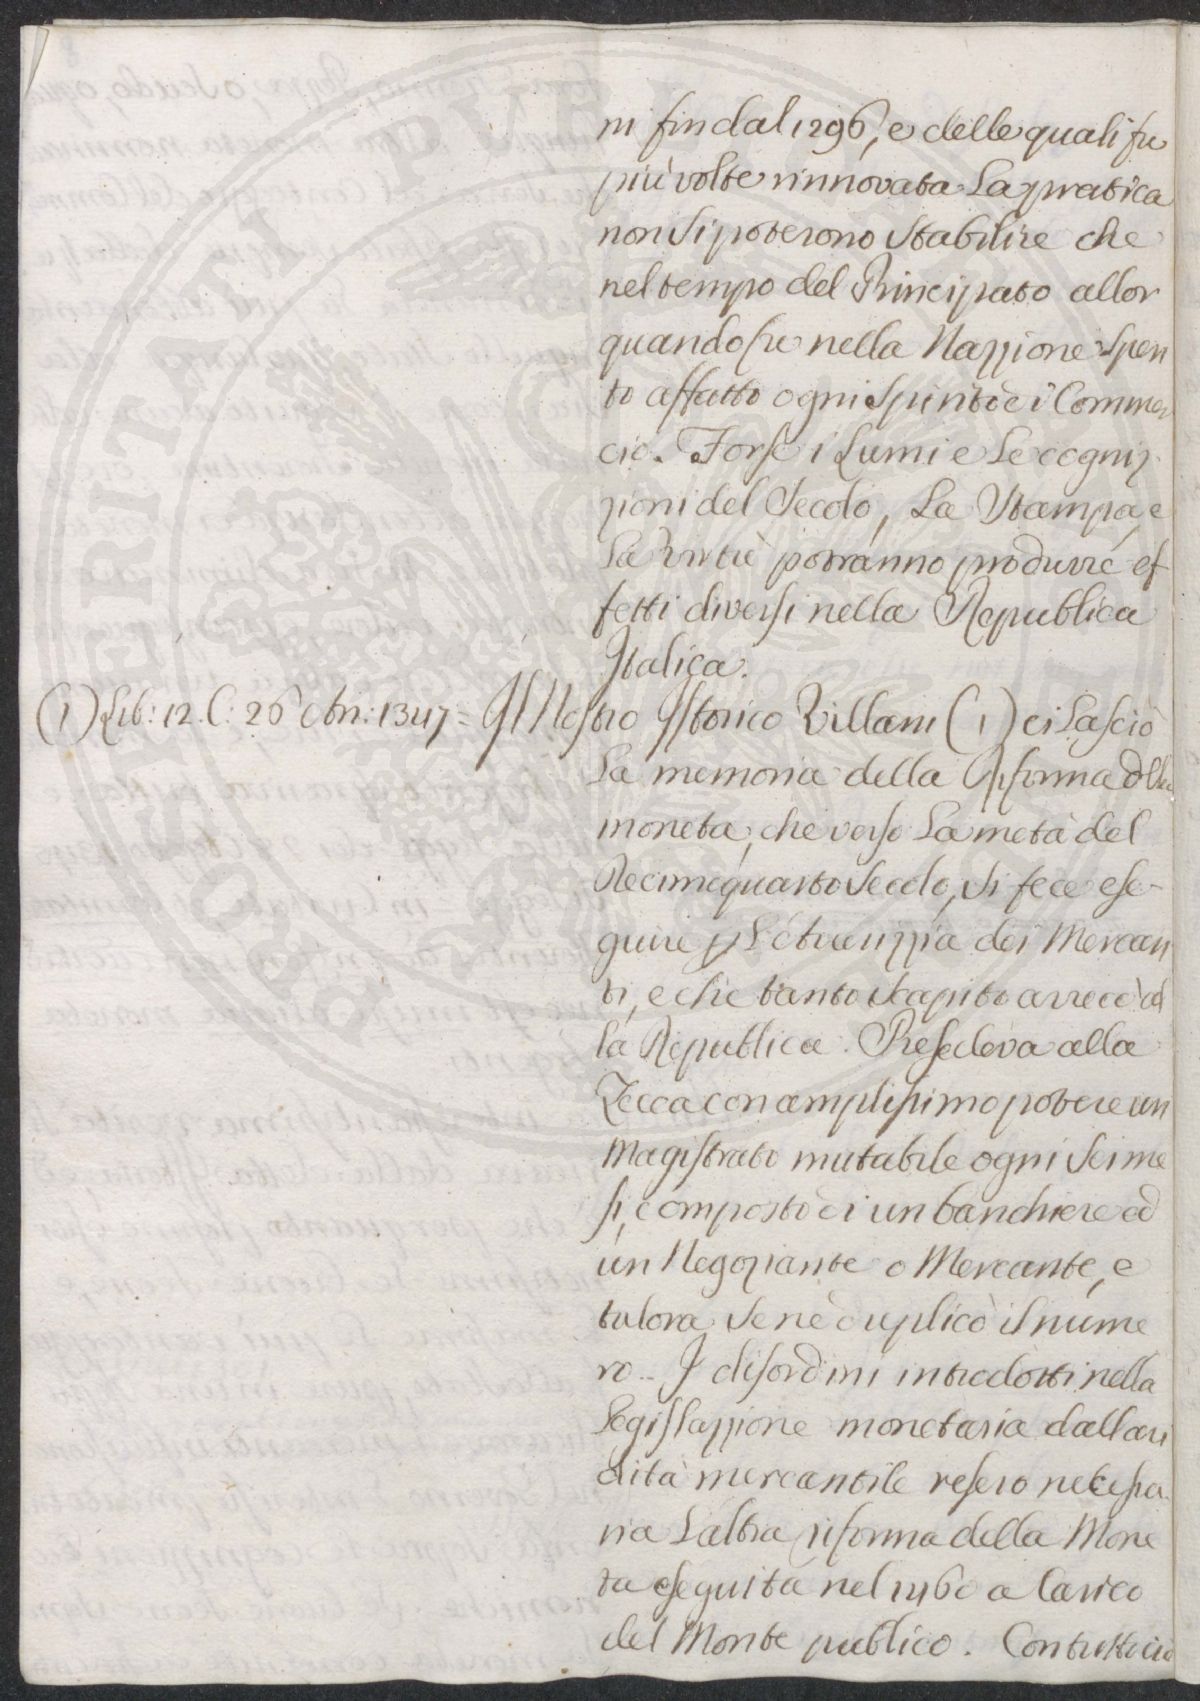 ni fin dal 1296, e delle quali fu
più volte rinnovata La pratica
non Si poterono Stabilire che
nel tempo del Principato allor
quando fu nella Nazzione Spen
to affatto ogni Spirito di Commer
cio. Forse i Lumi e Le cogniz
zioni del Secolo, La Stampa, e
La Virtù potranno produrre ef
fetti diversi nella Republica
Italica.
(1) Lib: 12. C: 26 = Il Nostro Istorico Villani (1) ci Lasciò
La memoria della Riforma della
moneta, che verso La metà del
Decimoquarto Secolo, Si fece ese-
guire p L'étruizzia dei Mercan
ti, e che tanto Scapito arrecò al
la Republica. Presedeva alla
Zecca con amplissimo potere un
Magistrato mutabile ogni Sei me
si, composto di un banchiere ed
un Negoziante o Mercante, e
talora Se ne duplicò il nume
ro.. I disordini introdotti nella
Legislazzione monetaria dall avi
dità mercantile resero necessa
ria L'altra riforma della Mone
ta eseguita nel 1460 a Carico
del Monte publico. Contuttociò
POSTERITATI PUBLIC